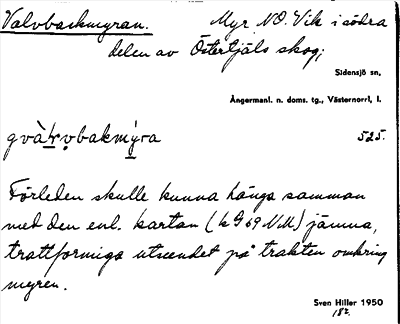 Valvbackmyran. Myr NO. Vik i södra
delen av Östertjäls skog;
Sidensjö sn,
Ångermanl. n. doms. tg., Västernorrl, l.
525.
Förleden skulle kunna hänga samman
med den enl. kartan (k G 69 NM) jämna,
trattformiga utseendet på trakten omkring
myren.
Sven Hiller 1950